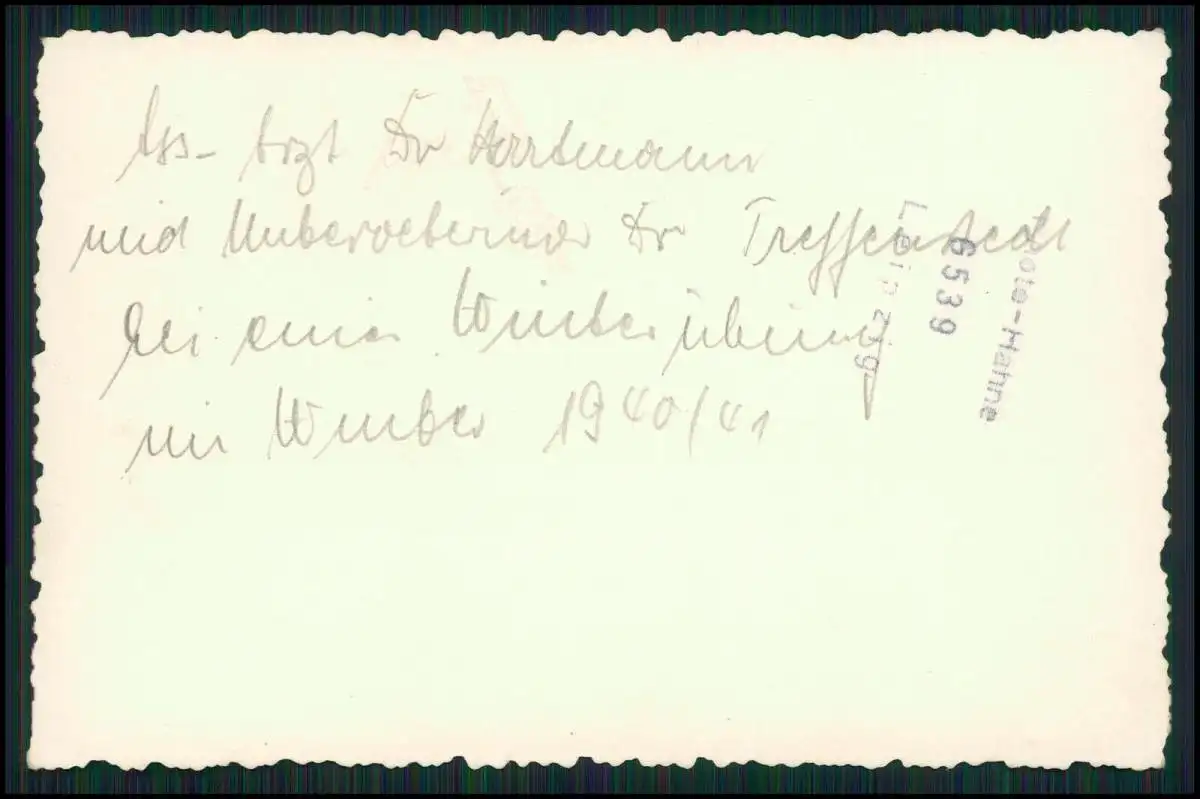 Ass-Arzt Dr Hartmann
und Unterveterinär Dr Treffenstedt
bei einer Winterübung
im Winter 1940/41
Foto-Hahne
6539
Leipzig